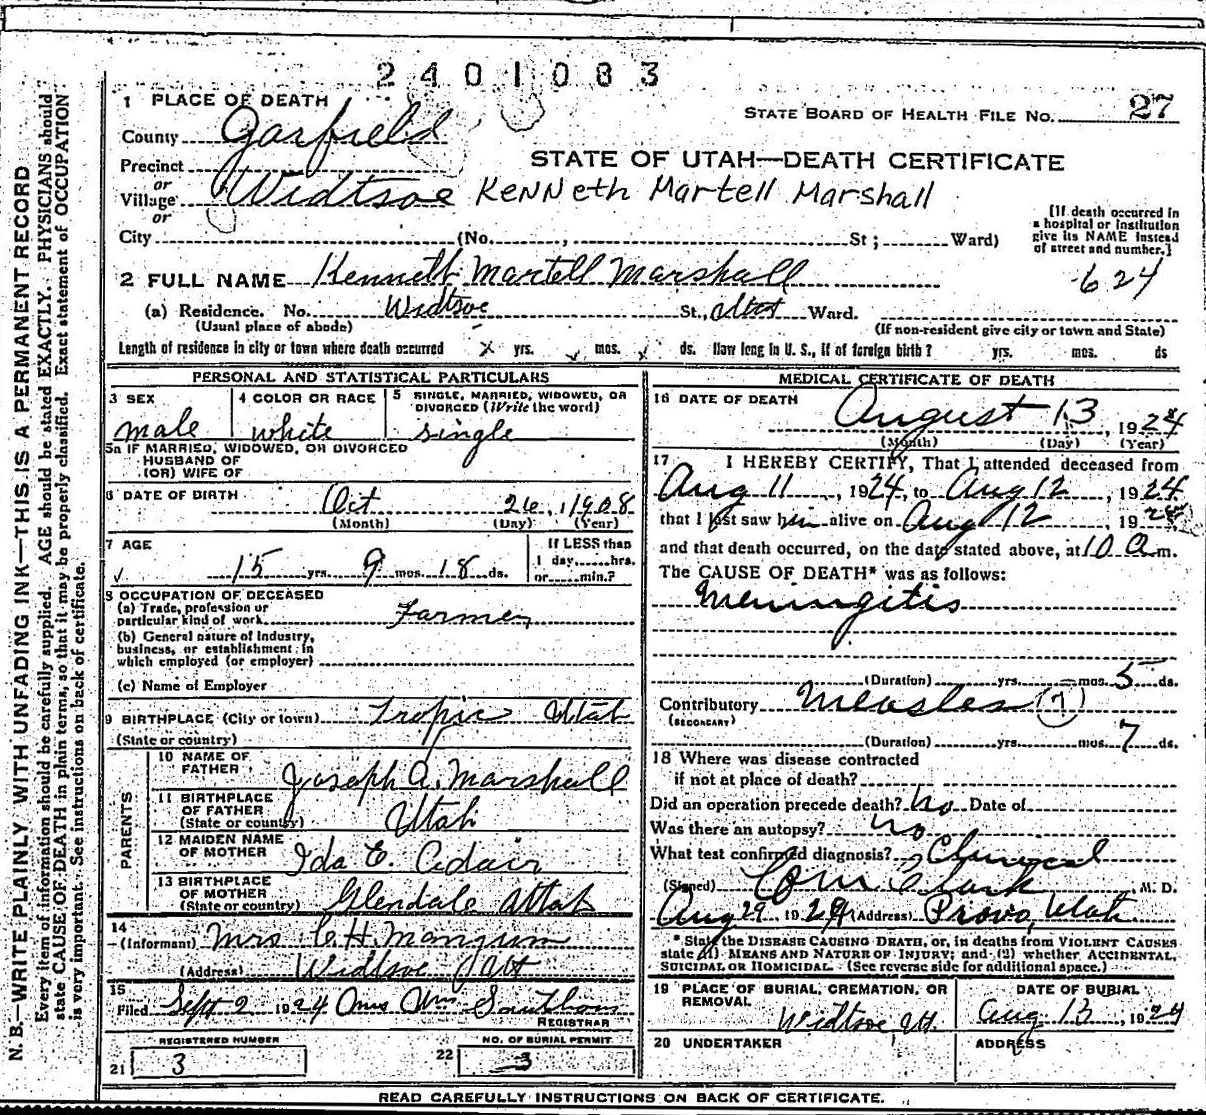 2401083
1 PLACE OF DEATH
STATE BOARD OF HEALTH FILE NO. 27
County Garfield
STATE OF UTAH—DEATH CERTIFICATE
Precinct
or
Village Widtsoe Kenneth Martell Marshall
or
City (No. , St; Ward)
[If death occurred in
a hospital or institution
give its NAME instead
of street and number.]
2 FULL NAME Kenneth Martell Marshall
624
(a) Residence. No. Widtsoe St., Utah Ward.
(Usual place of abode)
(If non-resident give city or town and State)
Length of residence in city or town where death occurred yrs. mos. ds. How long in U. S., if of foreign birth? yrs. mos. ds
PERSONAL AND STATISTICAL PARTICULARS
3 SEX
male
4 COLOR OR RACE
white
5 SINGLE, MARRIED, WIDOWED, OR
DIVORCED (Write the word)
single
5a IF MARRIED, WIDOWED, OR DIVORCED
HUSBAND OF
(OR) WIFE OF
6 DATE OF BIRTH Oct 26, 1908
(Month) (Day) (Year)
7 AGE
15 yrs. 9 mos. 18 ds.
If LESS than
1 day......hrs.
or......min.?
8 OCCUPATION OF DECEASED
(a) Trade, profession or
particular kind of work Farmer
(b) General nature of industry,
business, or establishment in
which employed (or employer)
(c) Name of Employer
9 BIRTHPLACE (City or town) Tropic Utah
(State or country)
PARENTS
10 NAME OF
FATHER Joseph A. Marshall
11 BIRTHPLACE
OF FATHER
(State or country) Utah
12 MAIDEN NAME
OF MOTHER Ida E. Adair
13 BIRTHPLACE
OF MOTHER
(State or country) Glendale Utah
14
(Informant) Mrs C. H. Mangum
(Address) Widtsoe Utah
15
Filed Sept 2 1924 Mrs Wm
REGISTRAR
REGISTERED NUMBER
21 3
NO. OF BURIAL PERMIT
22 3
MEDICAL CERTIFICATE OF DEATH
16 DATE OF DEATH
August 13, 1924
(Month) (Day) (Year)
17 I HEREBY CERTIFY, That I attended deceased from
Aug 11, 1924, to Aug 12, 1924
that I last saw him alive on Aug 12, 1924
and that death occurred, on the date stated above, at 10 a m.
The CAUSE OF DEATH* was as follows:
Meningitis
(Duration) yrs. mos. 5 ds.
Contributory Measles (7)
(SECONDARY)
(Duration) yrs. mos. 7 ds.
18 Where was disease contracted
if not at place of death?
Did an operation precede death? No Date of
Was there an autopsy? no
What test confirmed diagnosis? Clinical
(Signed) Clark, M. D.
Aug 29 1924 (Address) Provo, Utah
* State the DISEASE CAUSING DEATH, or, in deaths from VIOLENT CAUSES
state (1) MEANS AND NATURE OF INJURY; and (2) whether ACCIDENTAL,
SUICIDAL OR HOMICIDAL. (See reverse side for additional space.)
19 PLACE OF BURIAL, CREMATION, OR
REMOVAL
Widtsoe, Ut.
DATE OF BURIAL
Aug 13, 1924
20 UNDERTAKER
ADDRESS
READ CAREFULLY INSTRUCTIONS ON BACK OF CERTIFICATE.
N. B.—WRITE PLAINLY WITH UNFADING INK—THIS IS A PERMANENT RECORD
Every item of information should be carefully supplied. AGE should be stated EXACTLY. PHYSICIANS should
state CAUSE OF DEATH in plain terms, so that it may be properly classified. Exact statement of OCCUPATION
is very important. See instructions on back of certificate.